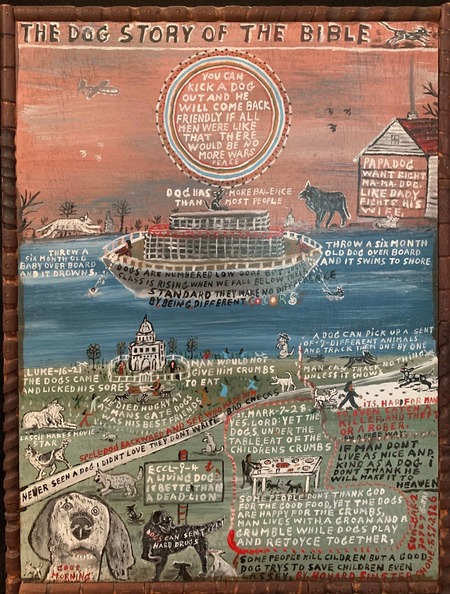 THE DOG STORY OF THE BIBLE
YOU CAN
KICK A DOG
OUT AND HE
WILL COME BACK
FRIENDLY IF ALL
MEN WERE LIKE
THAT THERE
WOULD BE NO
MORE WARS
PEACE
PAPA.DOG
WANT FIGHT
MA-MA-DOG.
LIKE DADY
FIGHTS HIS
WIFE.
DOG HAS MORE BALENCE
THAN MOST PEOPLE
THROW A
SIX MONTH OLD
BABY OVER BOARD
AND IT DROWNS,
THROW A SIX MONTH
OLD DOG OVER BOARD
AND IT SWIMS TO SHORE
DOGS ARE NUMBERED LOW
CLASS IS RISING WHEN WE FALL BELOW THESE
STANDARD THEY MAKE NO
BY BEING DIFFERENT COLORS
A DOG CAN PICK UP A SENT
OF-7-DIFFERENT ANIMALS
AND TRACK THEM ONE BY ONE
MAN CAN TRACK NOTHING
LUKE-16-21
THE DOGS CAME
AND LICKED HIS SORES
MAN WOULD NOT
GIVE HIM CRUMBS
HE DIED HUNGRY AT
MANS GATE DOGS
WAS HIS BEST FRIENDS
LASSIE MAKES MOVIE
SPELL DOG BACKWARD AND SEE WHO
NEVER SEEN A DOG I DIDNT LOVE THEY DONT WRITE BAD CHECKS
ITS, HARD FOR MAN
TO EVEN CATCH A
KILLER AND THEFT
OR A ROBER.
IF MAN DONT
LIVE AS NICE AND
KIND AS A DOG I
DONT THINK HE
WILL MAKE IT TO
HEAVEN
ST.MARK-7-28
YES.LORD:YET THE
DOGS UNDER THE
TABLE.EAT OF THE
CHILDRENS CRUMBS
ECCL-9-4
A LIVING DOG
IS BETTER THAN
A DEAD LION
SOME PEOPLE DONT THANK GOD
FOR THE GOOD FOOD, YET THE DOGS
ARE HAPPY FOR THE CRUMBS.
MAN LIVES WITH A GROAN AND A
GRUMBLE WHILE DOGS PLAY
AND REJOYCE TOGETHER,
DOGS CAN SENT
HARD DRUGS
GOOD
MORNING
SOME PEOPLE KILL CHILDREN BUT A GOOD
DOG TRYS TO SAVE CHILDREN EVEN
LASSEY. BY. HOWARD FINSTER